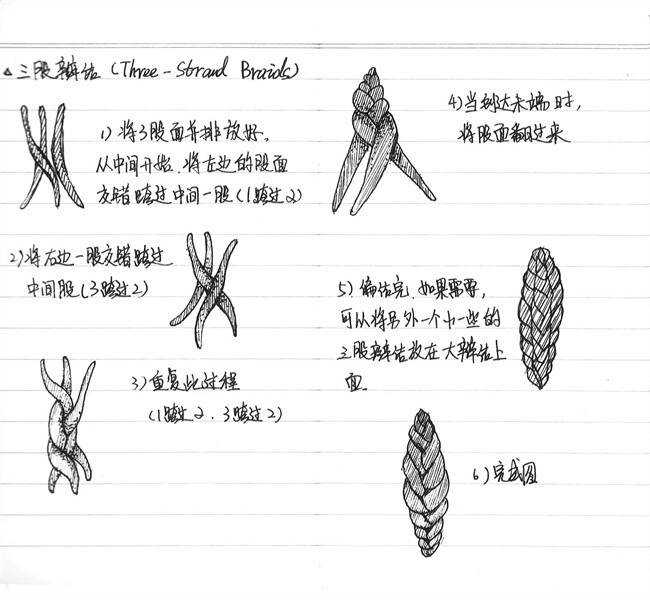 △三股辫结 (Three-Strand Braids)
1) 将3股面并排放好.
从中间开始.将左边的股面
交错跨过中间一股(1跨过2)
2)将右边一股交错跨过
中间股(3跨过2)
3)重复此过程
(1跨过2.3跨过2)
4)当到达末端时,
将股面翻过来
5)编结完.如果需要,
可以将另外一个小一些的
三股辫结放在大辫结上
面.
6)完成图